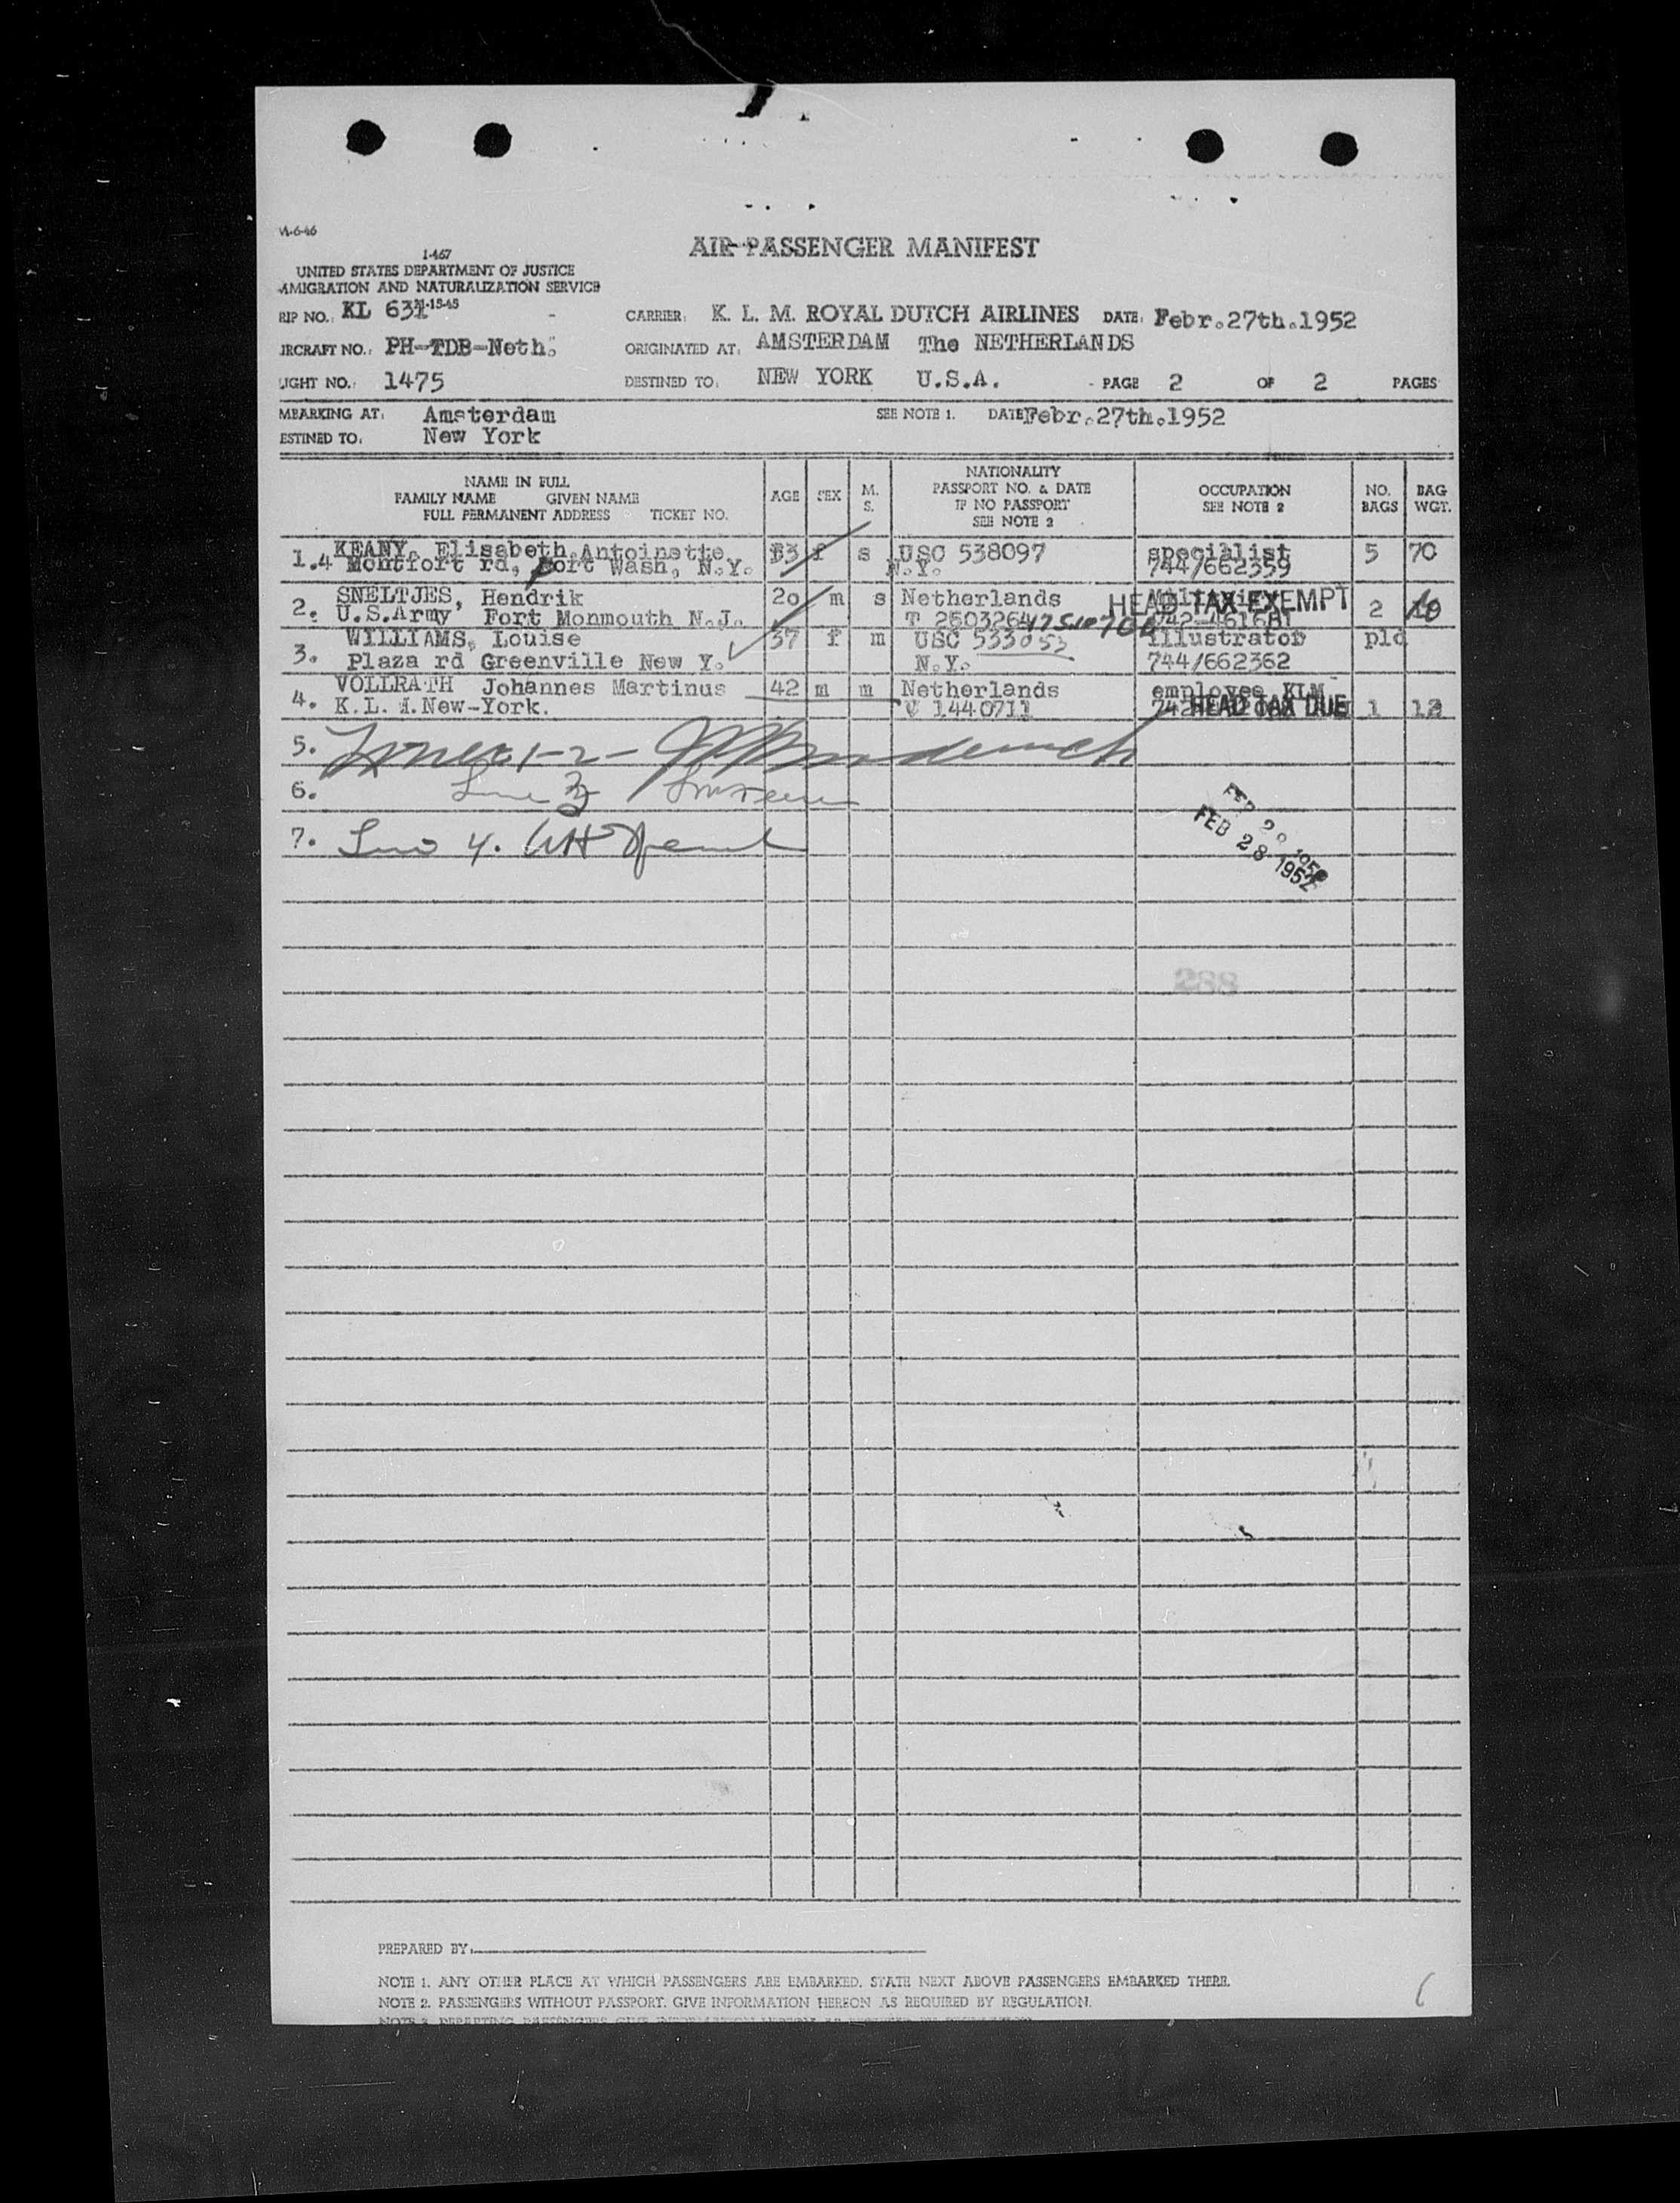 VI-6-46
I-467
AIR PASSENGER MANIFEST
UNITED STATES DEPARTMENT OF JUSTICE
MIGRATION AND NATURALIZATION SERVICE
RIP NO. KL 631 11-15-45 CARRIER: K. L. M. ROYAL DUTCH AIRLINES DATE: Febr.27th.1952
IRCRAFT NO.: PH-TDB-Neth. ORIGINATED AT: AMSTERDAM The NETHERLANDS
LIGHT NO.: 1475 DESTINED TO: NEW YORK U.S.A. PAGE 2 OF 2 PAGES
MBARKING AT: Amsterdam SEE NOTE 1. DATE Febr.27th.1952
ESTINED TO: New York
NAME IN FULL
FAMILY NAME GIVEN NAME
FULL PERMANENT ADDRESS TICKET NO.
AGE
SEX
M.
S.
NATIONALITY
PASSPORT NO. & DATE
IF NO PASSPORT
SEE NOTE 2
OCCUPATION
SEE NOTE 2
NO.
BAGS
BAG
WGT.
1. KEANY, Elisabeth Antoinette f s USC 538097 specialist 5 70
4 Montfort rd, Port Wash, N.Y. N.Y. 744/662359
2. SNELTJES, Hendrik 20 m s Netherlands HEAD TAX EXEMPT 2
U.S.Army Fort Monmouth N.J. T 2503264 742-461681
3. WILLIAMS, Louise 37 f m USC 533053 illustrator pld
Plaza rd Greenville New Y. N.Y. 744/662362
4. VOLLRATH Johannes Martinus 42 m m Netherlands employee KLM 1 12
K.L.M.New-York. 1440711 HEAD TAX DUE
5.
6.
7.
FEB 28 1952
288
PREPARED BY
NOTE 1. ANY OTHER PLACE AT WHICH PASSENGERS ARE EMBARKED. STATE NEXT ABOVE PASSENGERS EMBARKED THERE.
NOTE 2. PASSENGERS WITHOUT PASSPORT. GIVE INFORMATION HEREON AS REQUIRED BY REGULATION.